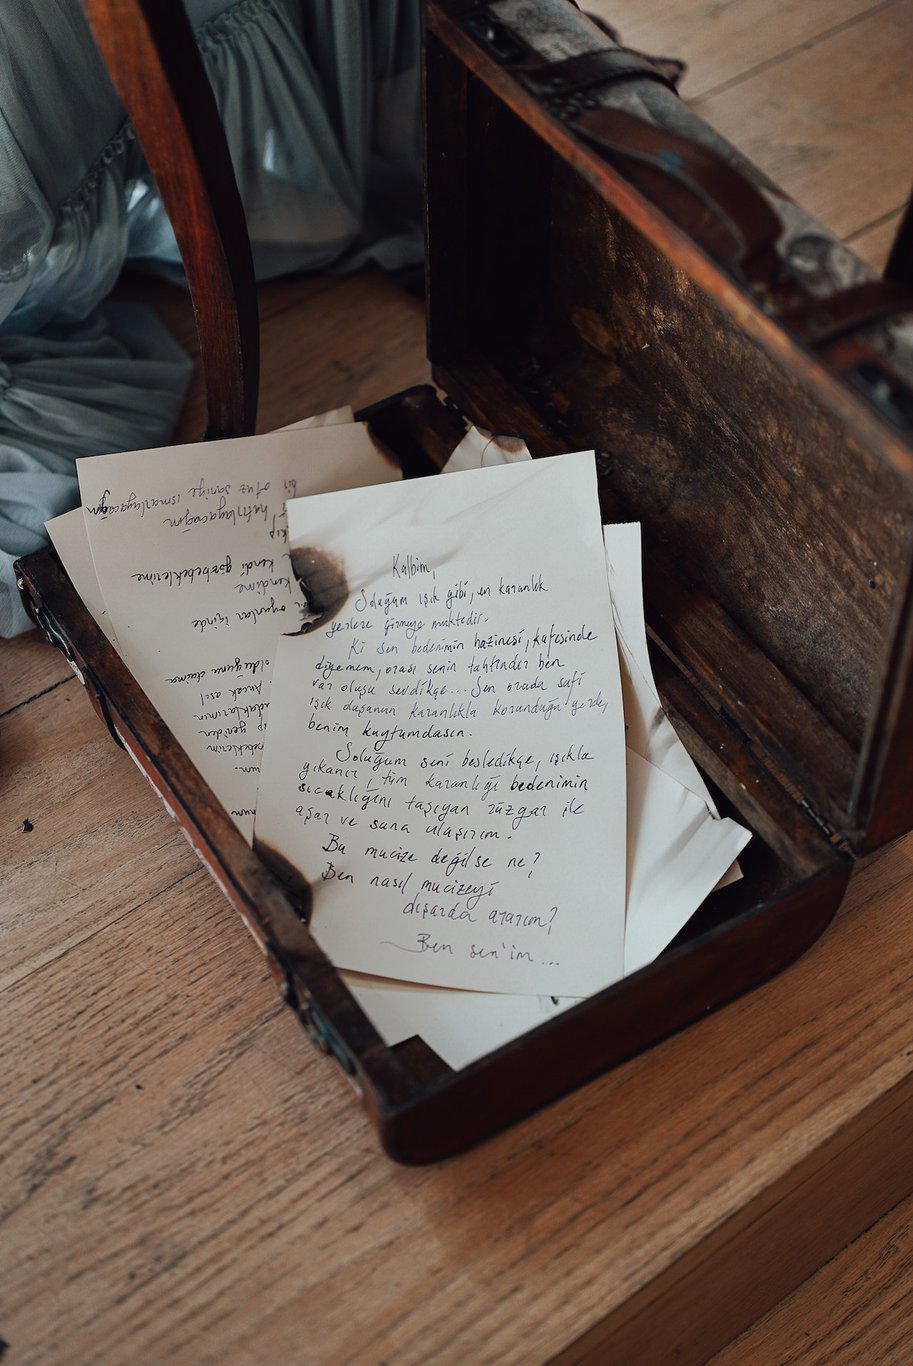 Kalbim,
Soluğum ışık gibi, en karanlık
yerlere girmeye muktedir.
Ki sen bedenimin hazinesi, kafesinde
diyemem, orası senin tahtındır ben
var oluşu sevdikçe... Sen orada safi
ışık duşunun karanlıkla korunduğu yerde,
benim kaytumdasın.
Soluğum seni besledikçe, ışıkla
yıkanır, tüm karanlığı bedenimin
sıcaklığını taşıyan rüzgar ile
aşar ve sana ulaşırım.
Bu mucize değilse ne?
Ben nasıl mucizeyi
dışarda ararım?
Ben sen'im...
bir otuz saniye ısmarlayacağım
hatırlayacağım
kendi gözbebeklerime
kendime
oyunları içinde
olduğunu daima
Ancak asıl
yeniden